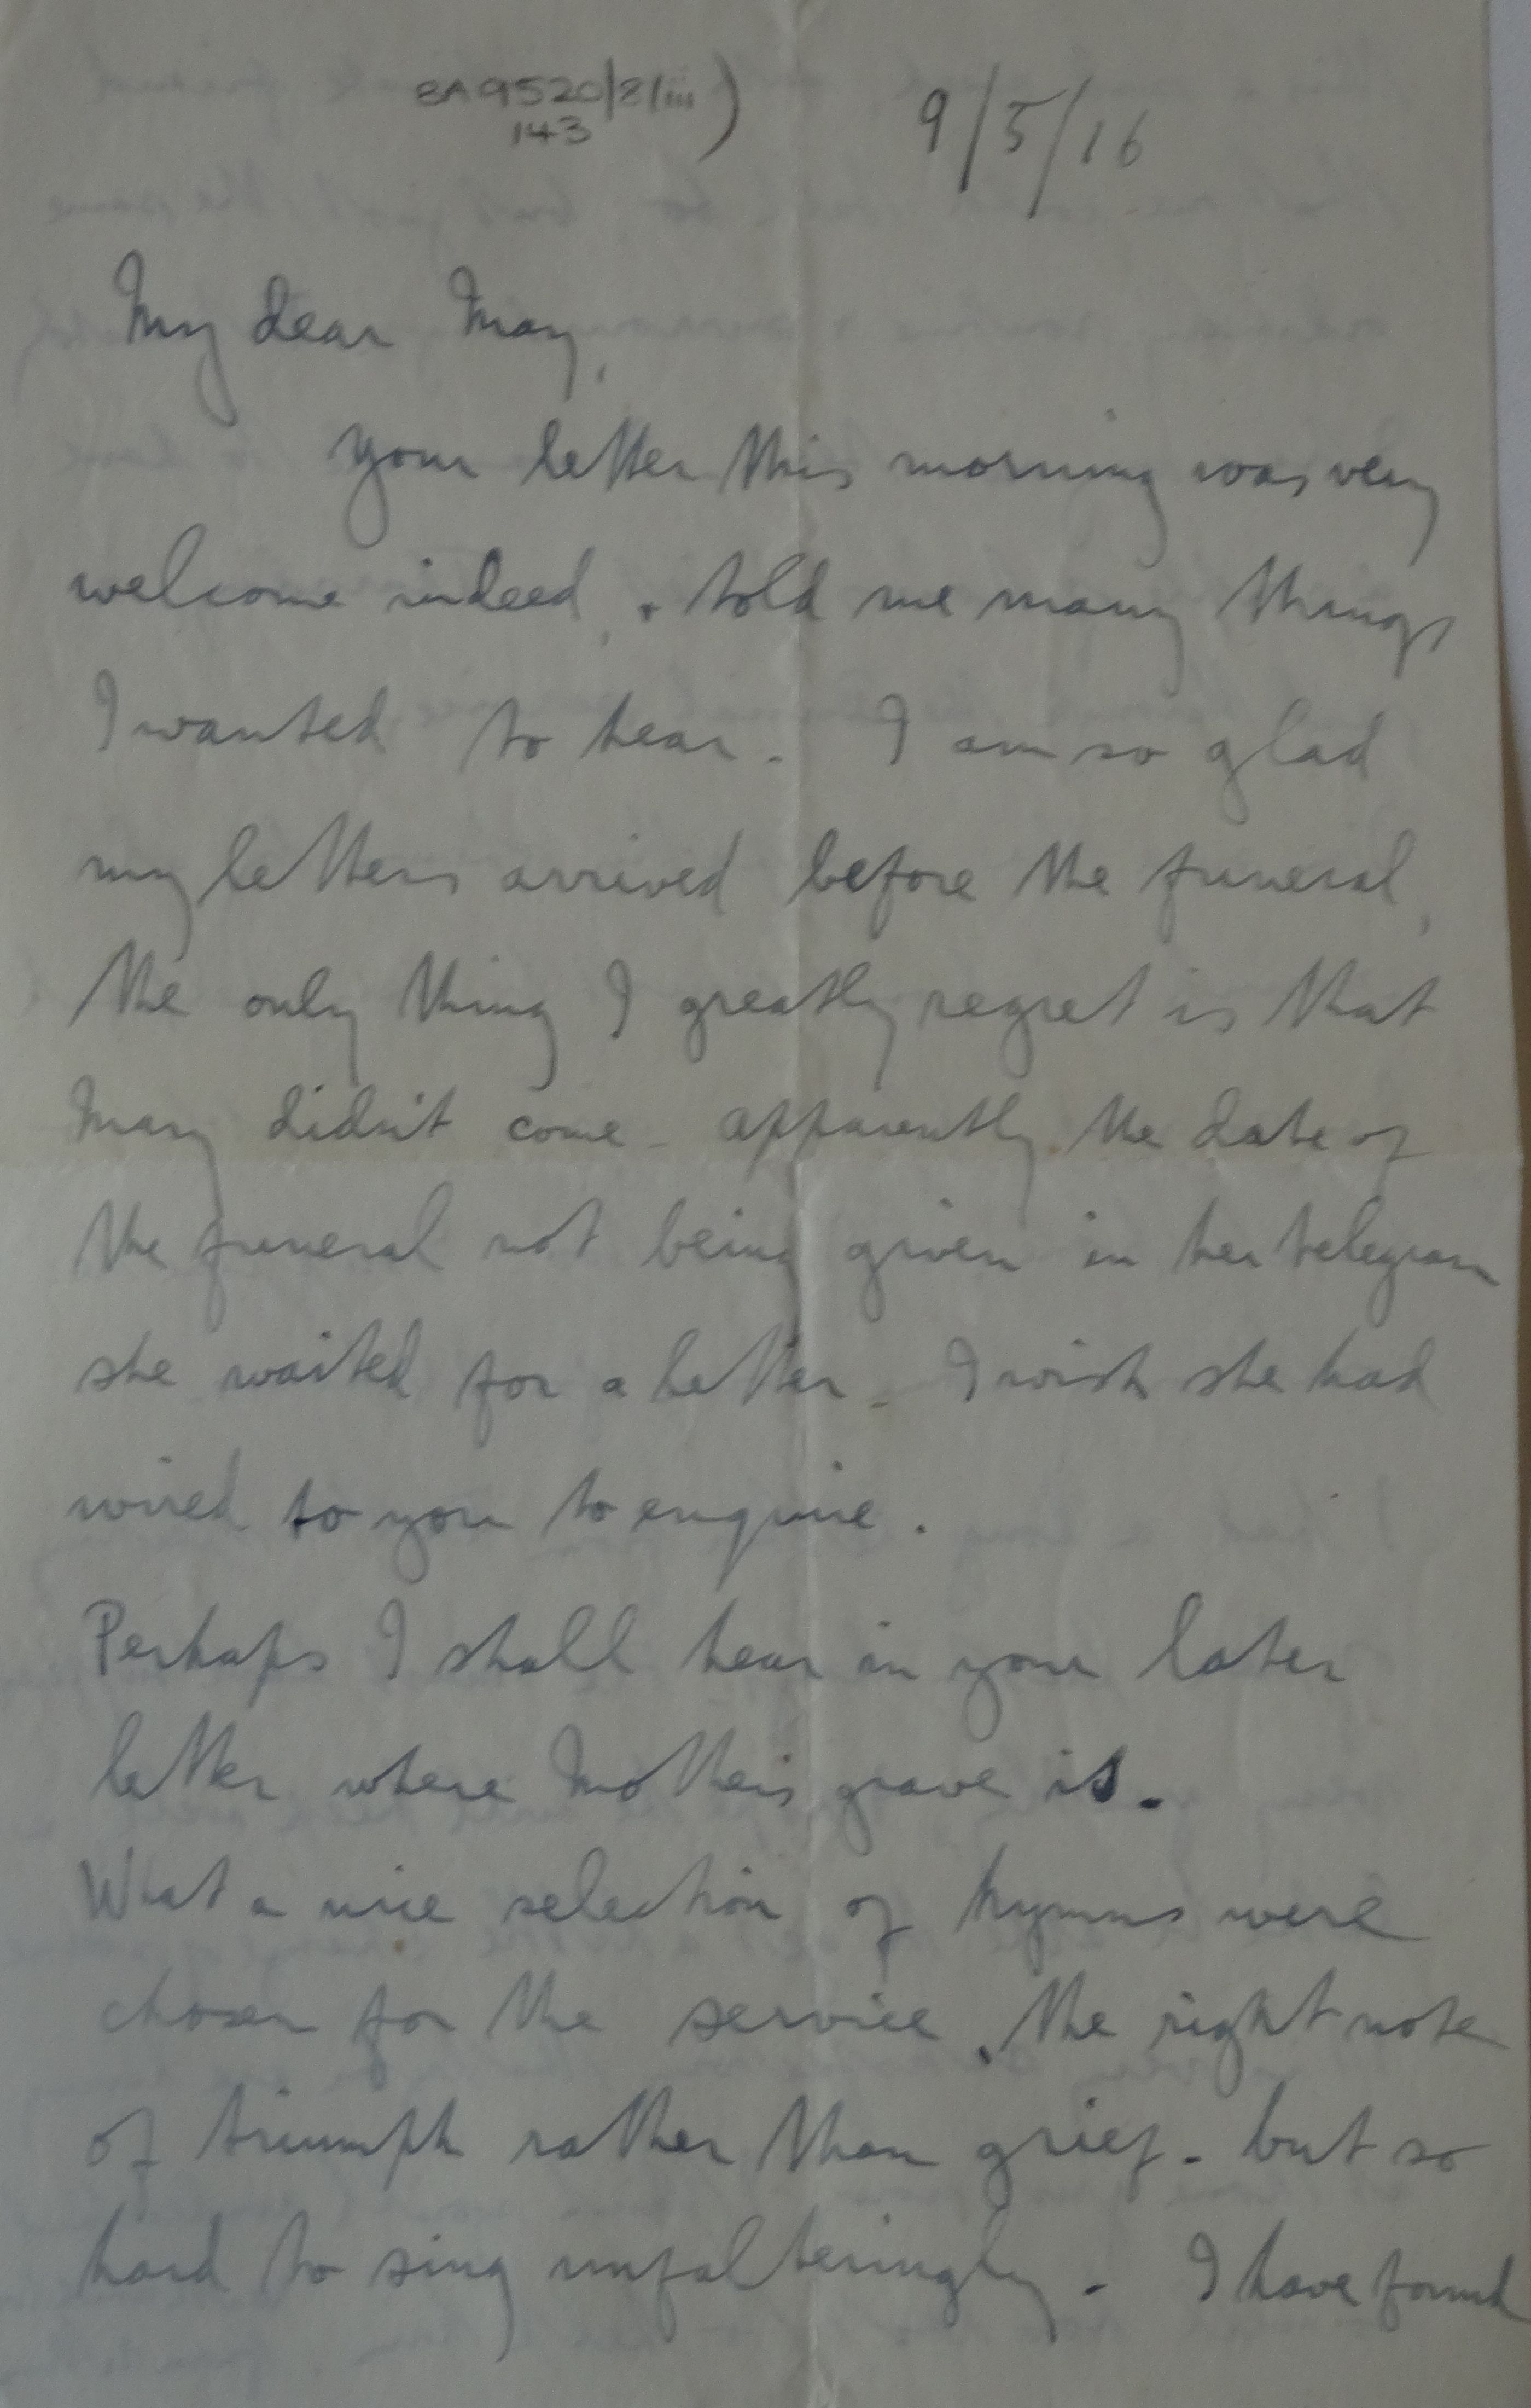 8A9520/8/iii)
143
9/5/16
My dear May,
Your letter this morning was very
welcome indeed, & told me many things
I wanted to hear. I am so glad
my letters arrived before the funeral,
the only thing I greatly regret is that
Mary didn't come - apparently the date of
the funeral not being given in her telegram
she waited for a letter - I wish she had
wired to you to enquire.
Perhaps I shall hear in your later
letter where Mother's grave is.
What a nice selection of hymns were
chosen for the service, the right note
of triumph rather than grief - but so
hard to sing unfalteringly - I have found